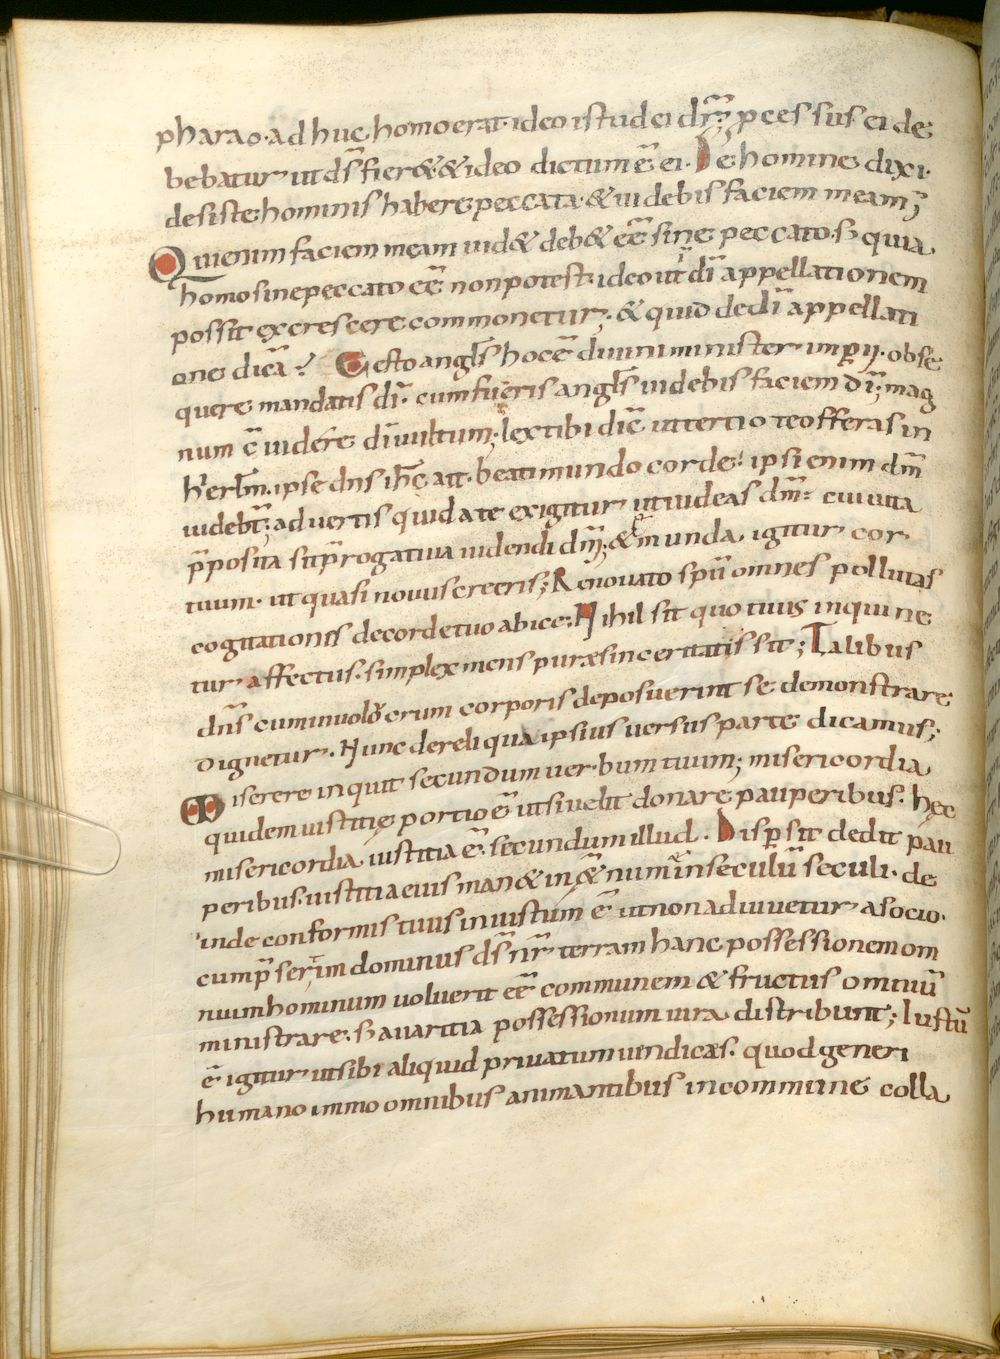 pharao· adhuc homo erat· ideo istud ei dr̄; p̄cessus ei de
bebatur ut d̄s fier&· & ideo dictum ē ei· De homine dixi·
desiste hominis habere peccata· & uidebis faciem meam;
Qui enim faciem meam uid& deb& eē̄ sine peccato· s; quia
homo sine peccato eē̄ non potest· ideo ut dī appellationem
possit excrescere commonetur; & quid de dī appellati
one dicā? Esto angls̄ hoc ē diuini minister imp̄ij· obse
quere mandatis dī· cum fueris angls̄ uidebis faciem dī; mag
num ē uidere dī uultum; lex tibi dīc ut tertio te offeras in
hierlm̄· ipse dn̄s ih̄c ait· beati mundo corde! ipsi enim dm̄
uidebt̄; aduertis quid a te exigitur ut uideas dm̄· cui uita
p̄posita sit p̄rogatiua uidendi dm̄; & munda igitur cor
tuum· ut quasi nouus creeris; Renouato spū omnes pollutas
cogitationis de corde tuo abice; Nihil sit quo tuus inquine
tur affectus· simplex mens puræ sinceritatis sit; Talibus
dn̄s cum inuolucrum corporis deposuerint se demonstrare
dignetur· Nunc de reliqua ipsius uersus parte dicamus;
Miserere inquit secundum uerbum tuum; misericordia
quidem iustitię portio ē ut si uelit donare pauperibus· hęc
misericordia iustitia ē· secundum illud· Dispersit dedit pau
peribus· iustitia eius man& in &̄num in seculū seculi· de
inde conformis tuus iniustum ē ut non adiuuetur a socio·
cum p̄sertim dominus d̄s nr̄ terram hanc possessionem om
nium hominum uoluerit eē̄ communem & fructus omniū
ministrare· s; auaritia possessionum iura distribuit; Iustū
ē igitur ut si tibi aliquid priuatum uindicas· quod generi
humano immo omnibus animantibus in commune colla